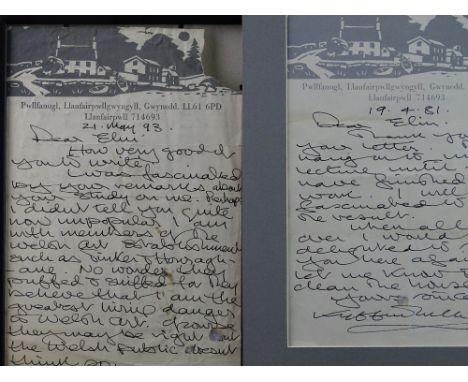 Pwllfanogl, Llanfairpwllgwyngyll, Gwynedd. LL61 6PD
Llanfairpwll 714693
21. May 93.
Dear Elin
How very good of
you to write.
I was fascinated
by your remarks about
your study on me. Perhaps
I didn't tell you quite
how unpopular I am
with members of the
Welsh art Establishment
such as
No wonder they
puffed & sulked for they
believe that I am the
greatest living danger
to Welsh art. Of course
they may be right but
the Welsh public doesn't
think so.
Pwllfanogl, Llanfairpwllgwyngyll, Gwynedd.
Llanfairpwll 714693
19. 4. 81.
Dear Elin
you
your letter.
hang onto
lecture until
have finished
work. I will
fascinated to
the result.
When all
over I would
delighted to
you here again
let me know
clean the house
Yours since